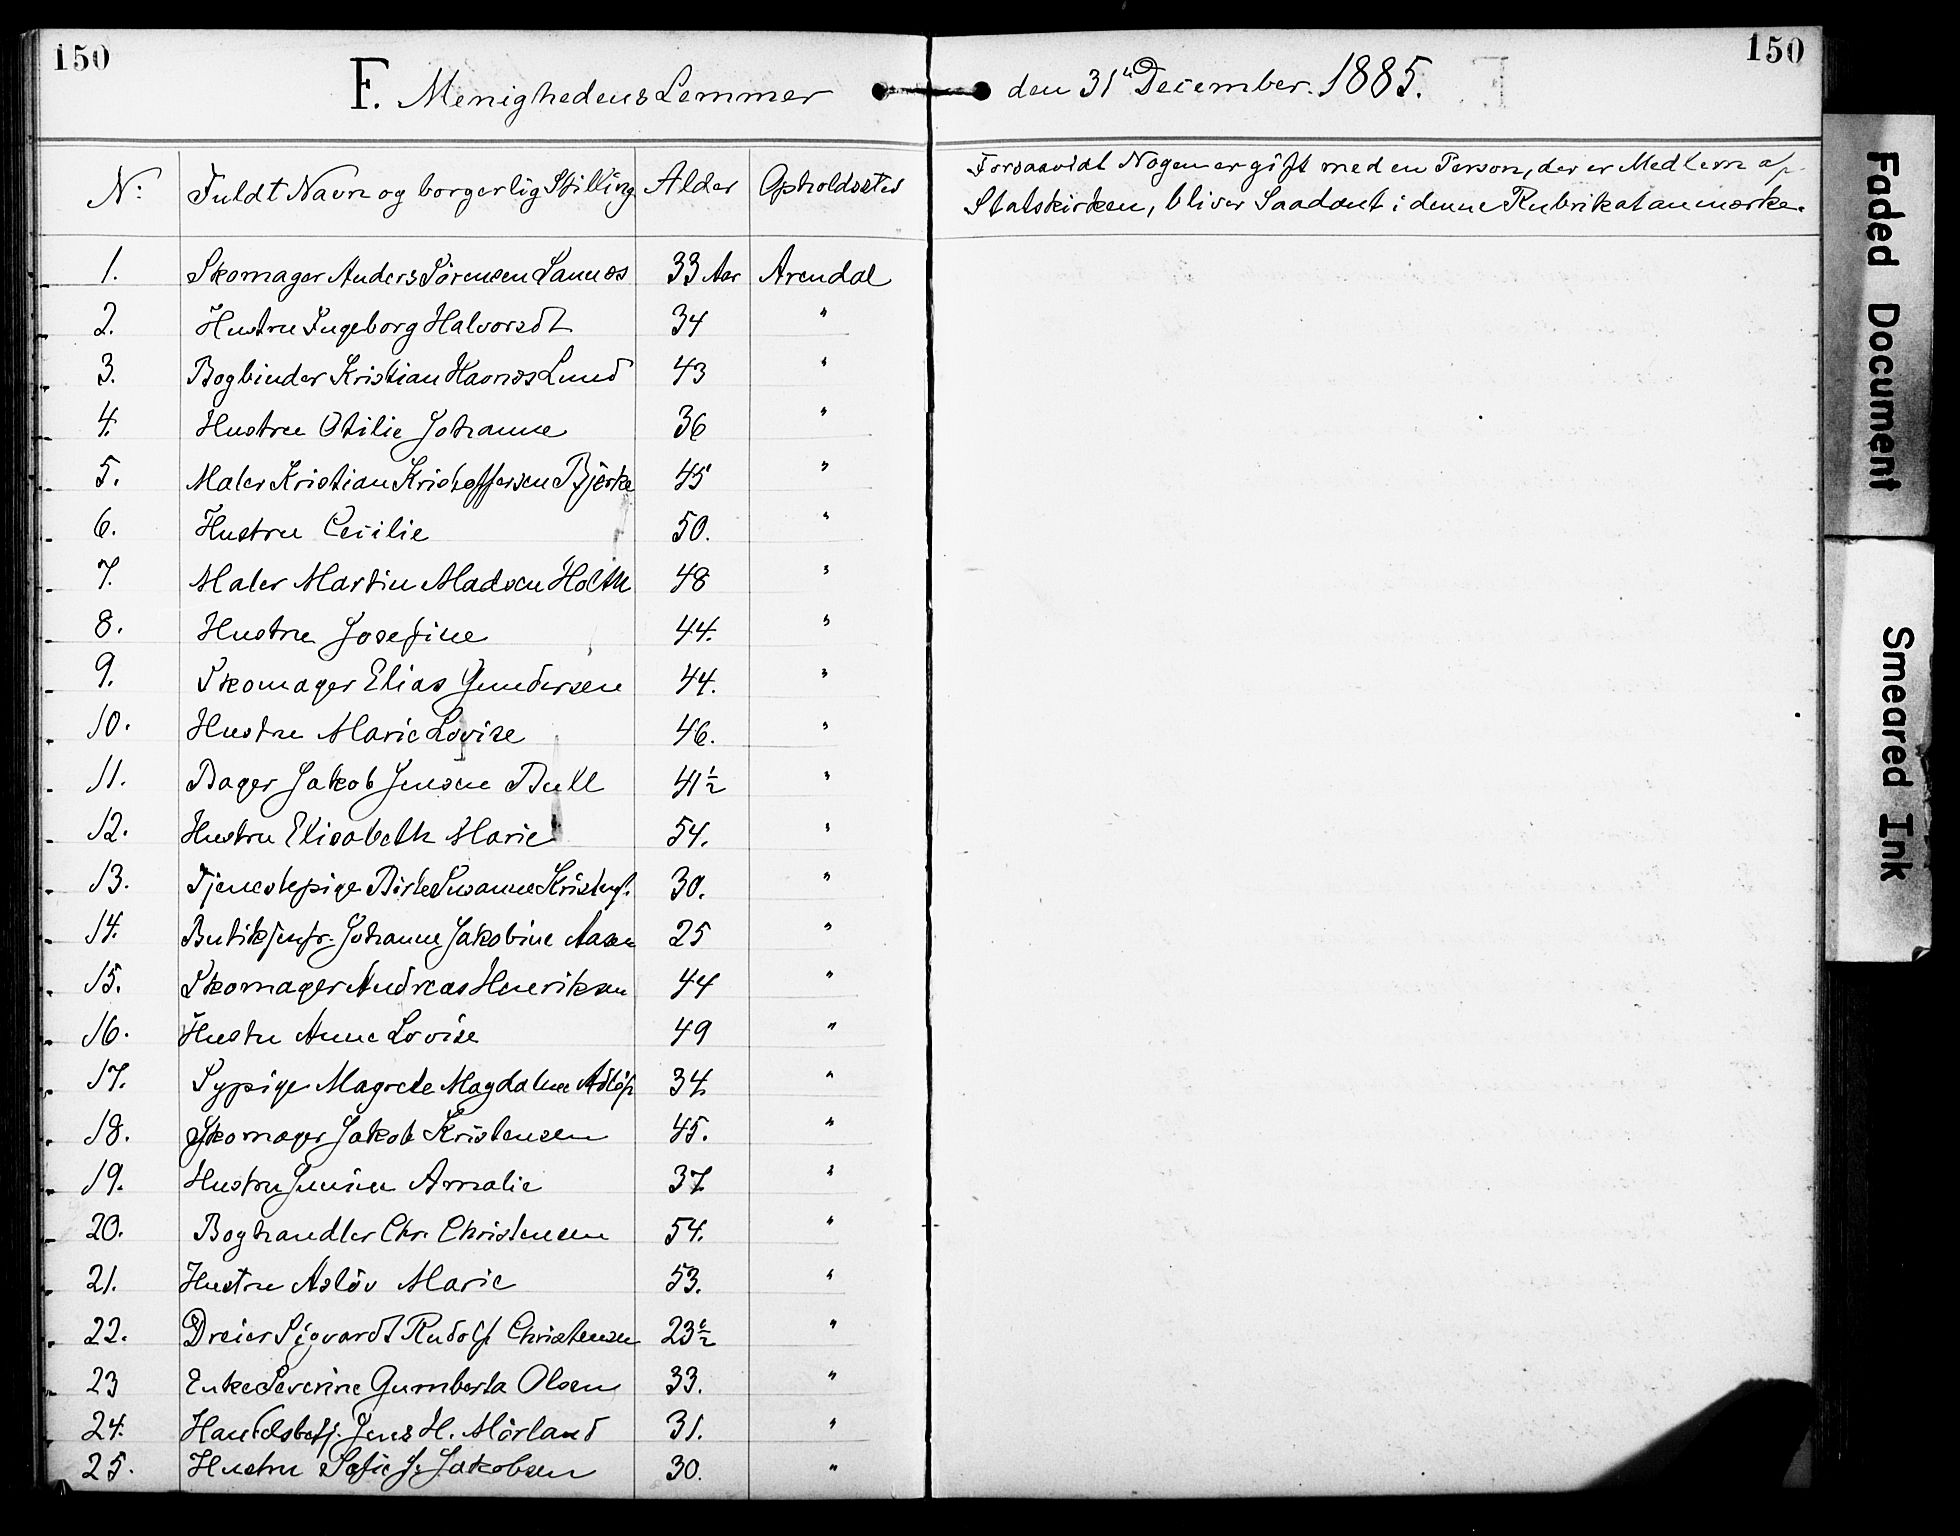 150
150
F. Menighedens Lemmer den 31te December. 1885.
N: Fuldt Navn og borgerlig Stilling Alder Opholdssted
Forsaavidt Nogen er gift med en Person, der er Medlem af
Statskirken, bliver Saadant i denne Rubrik at anmærke.
1. Skomager Anders Sörensen 33 Aar Arendal
2. Hustru Ingeborg Halvorsdt 34 "
3. Bogbinder Kristian Havnæs Lund 43 "
4. Hustru Otilie Johanne 36 "
5. Maler Kristian Kristoffersen Bjerke 45 "
6. Hustru Cecilie 50. "
7. Maler Martin Madsen Holth 48 "
8. Hustru Josefine 44. "
9. Skomager Elias Gundersen 44. "
10. Hustru Marie Lovise 46. "
11. Bager Jakob Jensen Bull 41½ "
12. Hustru Elisabeth Marie 54. "
13. Tjenestepige Birte Susanne 30. "
14. Butikjmfr. Johanne Jakobine Aasen 25 "
15. Skomager Andreas Henriksen 44 "
16. Hustru Anne Lovise 49 "
17. Sypige Magrete Magdalene 34. "
18. Skomager Jakob Kristensen 45. "
19. Hustru Amalie 37. "
20. Boghandler Chr. Christensen 54. "
21. Hustru Aslöv Marie 53. "
22. Dreier Sigvardt Rudolf Christensen 23½ "
23 Enke Severine Gumberta Olsen 33. "
24. Handelsbetj. Jens H. Mörland 31. "
25. Hustru Sofie J. Jakobsen 30. "
Faded Document
Smeared Ink